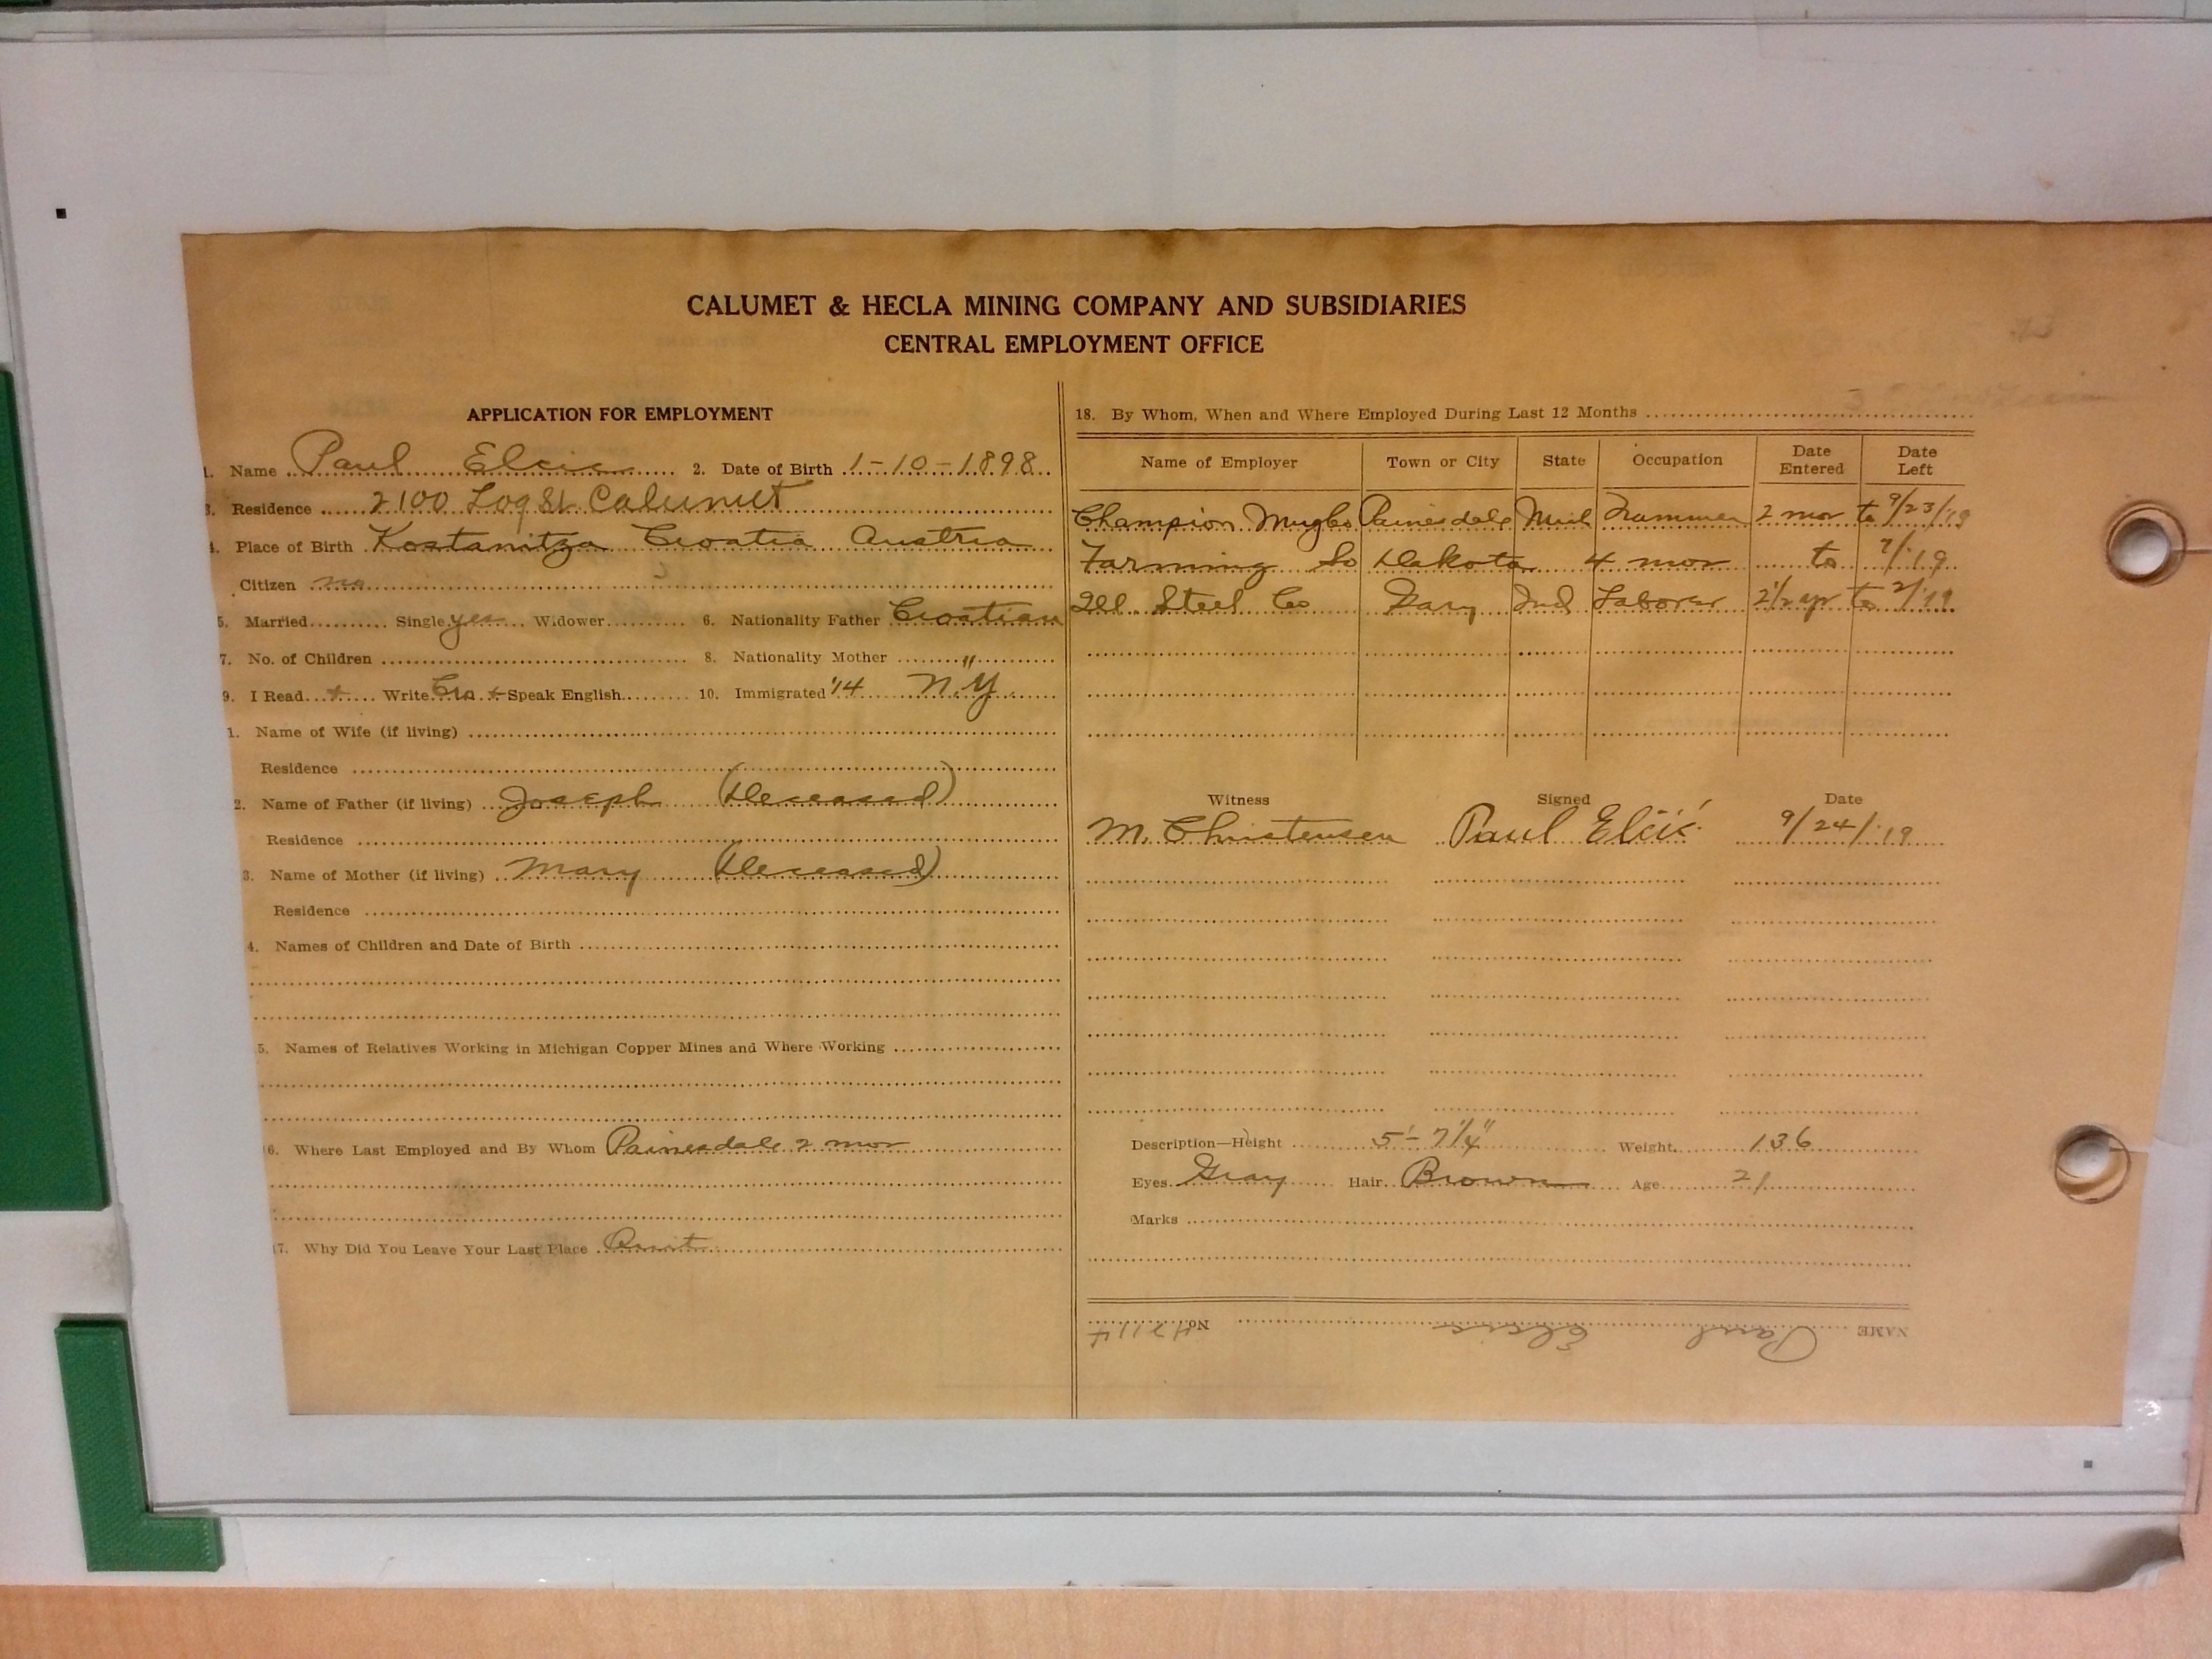 CALUMET & HECLA MINING COMPANY AND SUBSIDIARIES
CENTRAL EMPLOYMENT OFFICE
APPLICATION FOR EMPLOYMENT
1. Name Paul Elcic 2. Date of Birth 1-10-1898
3. Residence 2100 Log St. Calumet
4. Place of Birth Kostanitza Croatia Austria
Citizen no
5. Married Single yes Widower 6. Nationality Father Croatian
7. No. of Children 8. Nationality Mother "
9. I Read + Write Cro. + Speak English 10. Immigrated '14 N.Y.
1. Name of Wife (if living)
Residence
2. Name of Father (if living) Joseph (Deceased)
Residence
3. Name of Mother (if living) Mary (Deceased)
Residence
4. Names of Children and Date of Birth
5. Names of Relatives Working in Michigan Copper Mines and Where Working
16. Where Last Employed and By Whom Painesdale 2 mos
17. Why Did You Leave Your Last Place Quit
18. By Whom, When and Where Employed During Last 12 Months
Name of Employer Town or City State Occupation Date Entered Date Left
Champion Mng Co Painesdale Mich Trammer 2 mos to 9/23/19
Farming So Dakota 4 mos to 7/19
Ill. Steel Co Gary Ind Laborer 2 1/2 yr to 2/19
Witness Signed Date
M. Christensen Paul Elcić 9/24/19
Description—Height 5'-7 1/4" Weight 136
Eyes Gray Hair Brown Age 21
Marks
NAME Paul Elcic No. 42114